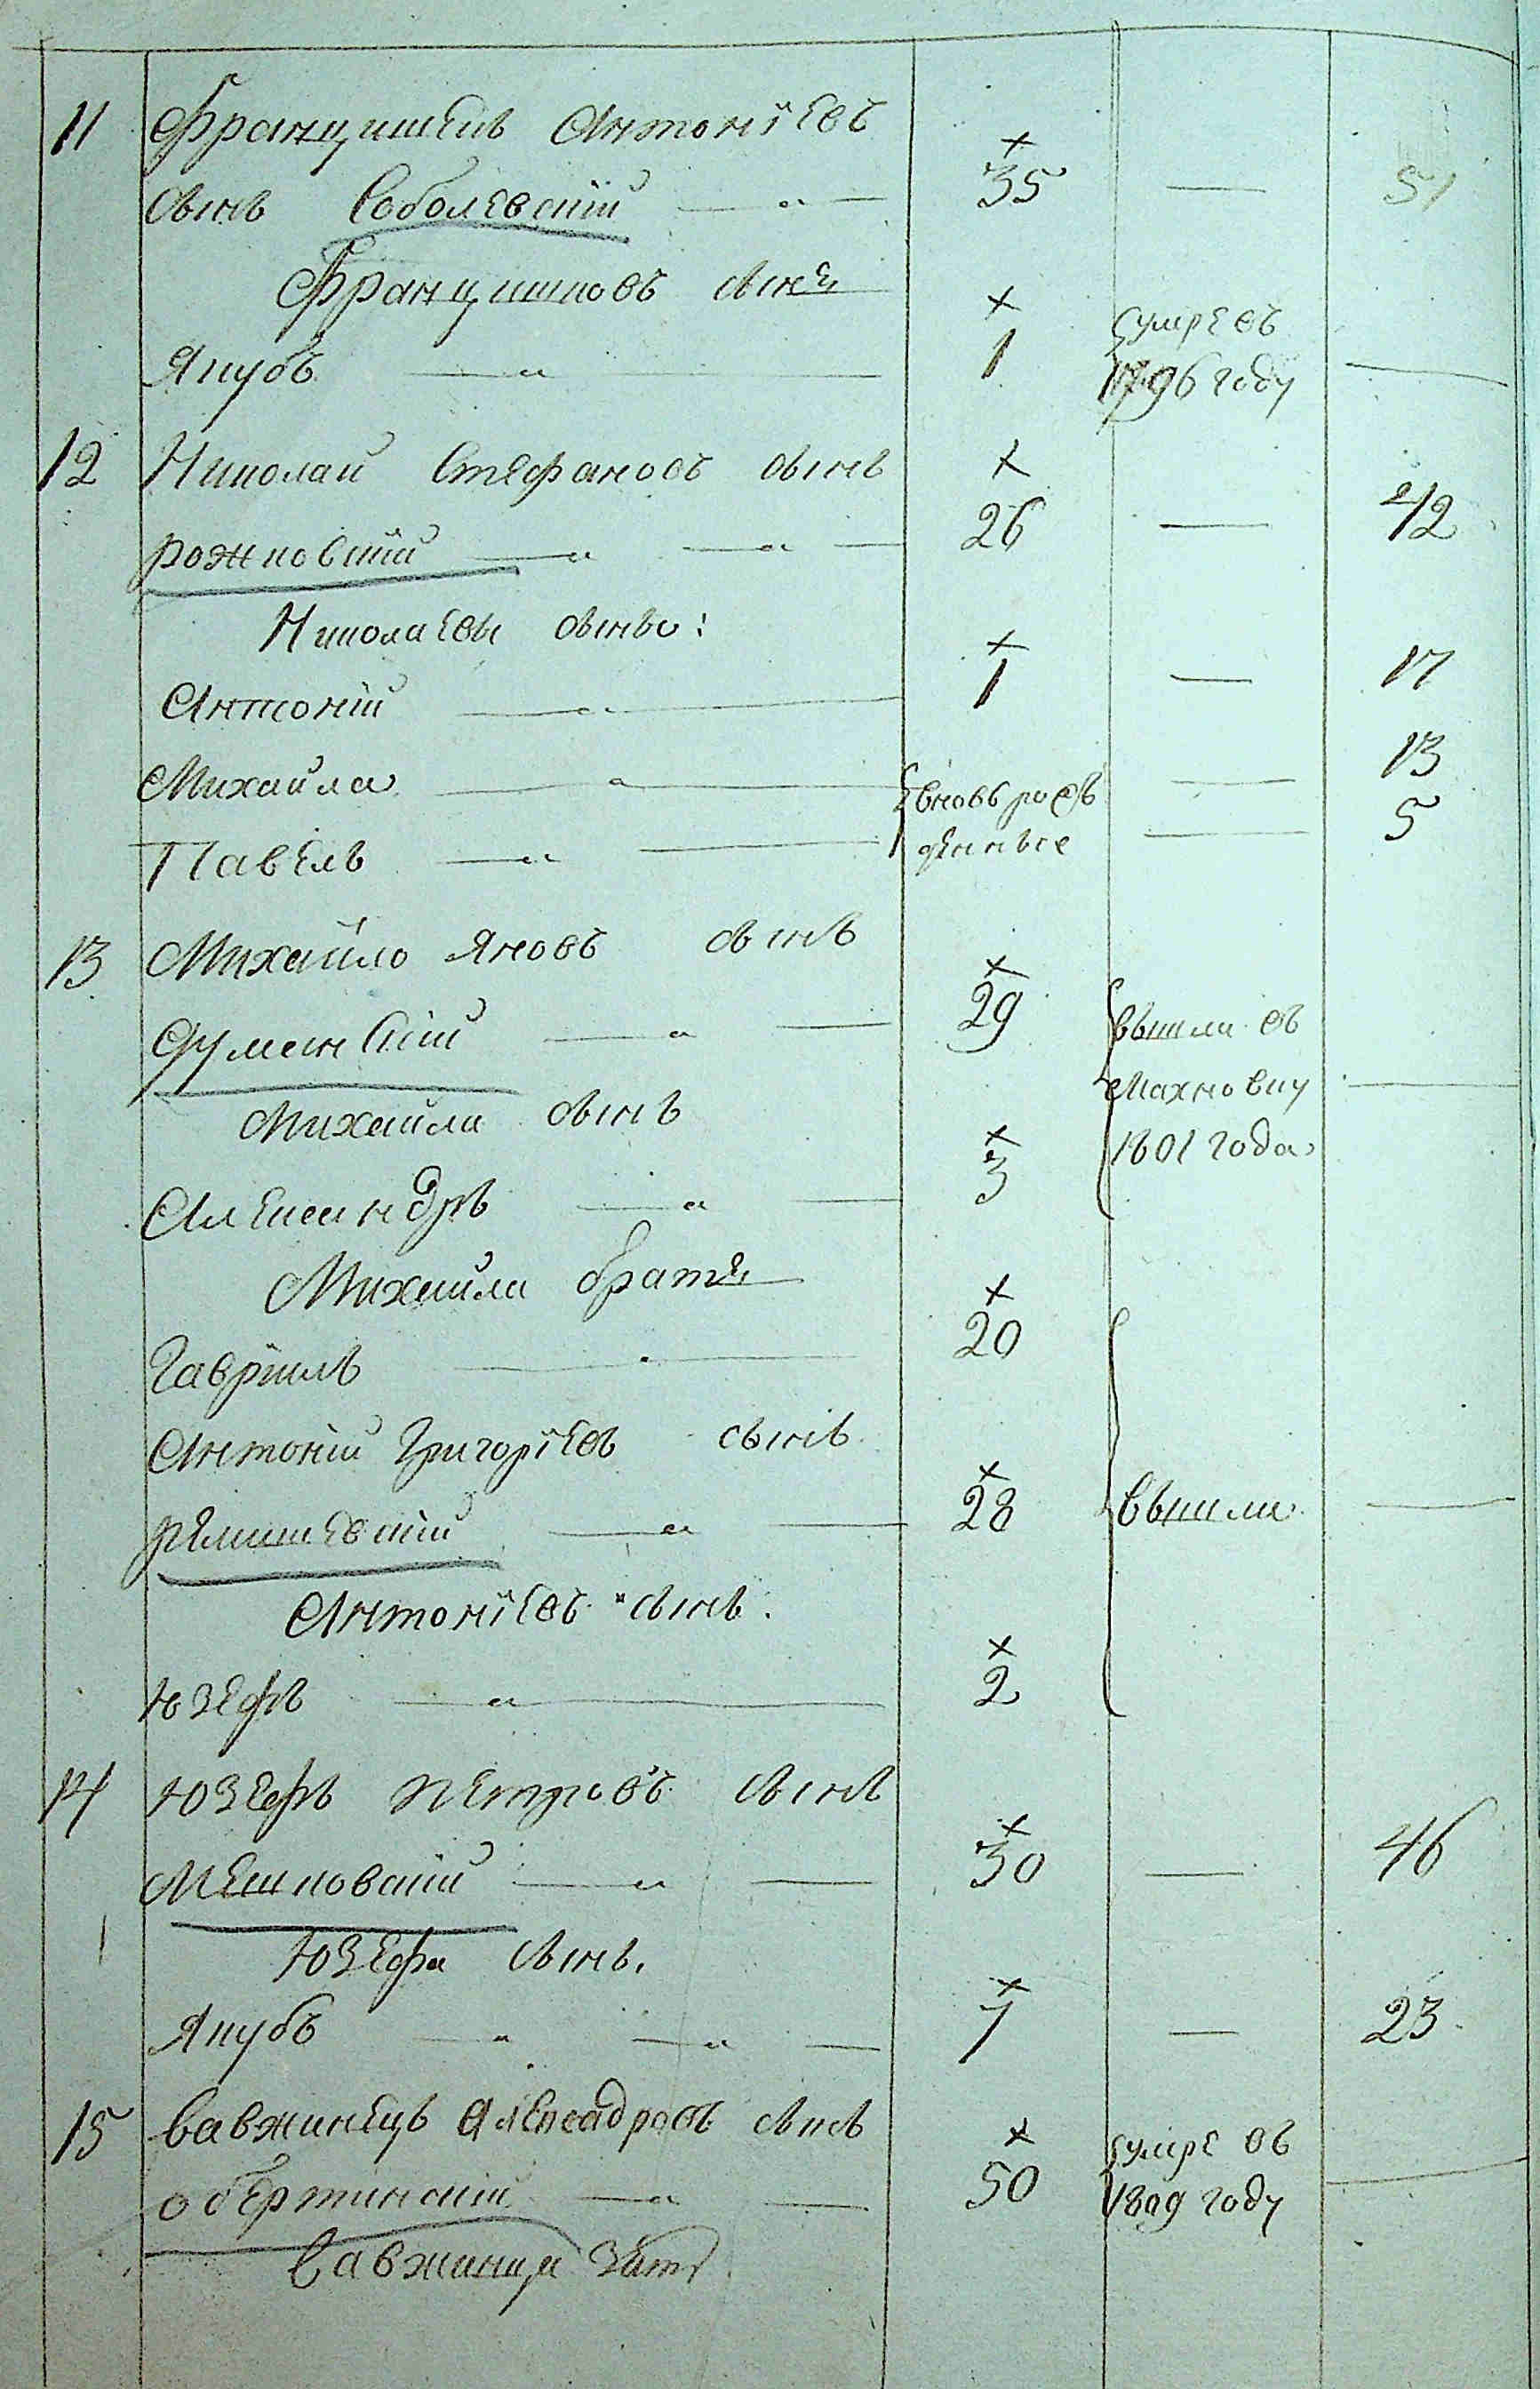 11 Францишекъ Антоніевъ
сынъ Соболевскій — " — 35 — 51
Францишковъ сынъ
Якубъ — " — 1 умре въ 1796 году —
12 Николай Стефановъ сынъ
рожковскій — " — " — 26 — 42
Николаевы сыны:
Антоній — " — 1 — 17
Михайла — " — вновь рож — 13
Павелъ — " — денные — 5
13 Михайло Яновъ сынъ
Думенскій — " — 29 вышли въ
Михайла сынъ Махновку —
Александръ — " — 3 1801 года
Михайла братъ
Гавріилъ — 20
Антоній Григоріевъ сынъ
— " — 28 вышли —
Антоніевъ сынъ.
Юзефъ — " — 2
14 Юзефъ Петровъ сынъ
Мешковскій — " — 30 — 46
Юзефа сынъ.
Якубъ — " — " — 7 — 23
15 Вавжинецъ Алексадровъ сынъ умре въ
обертинскій — " — 50 1809 году —
Вавжинца зять